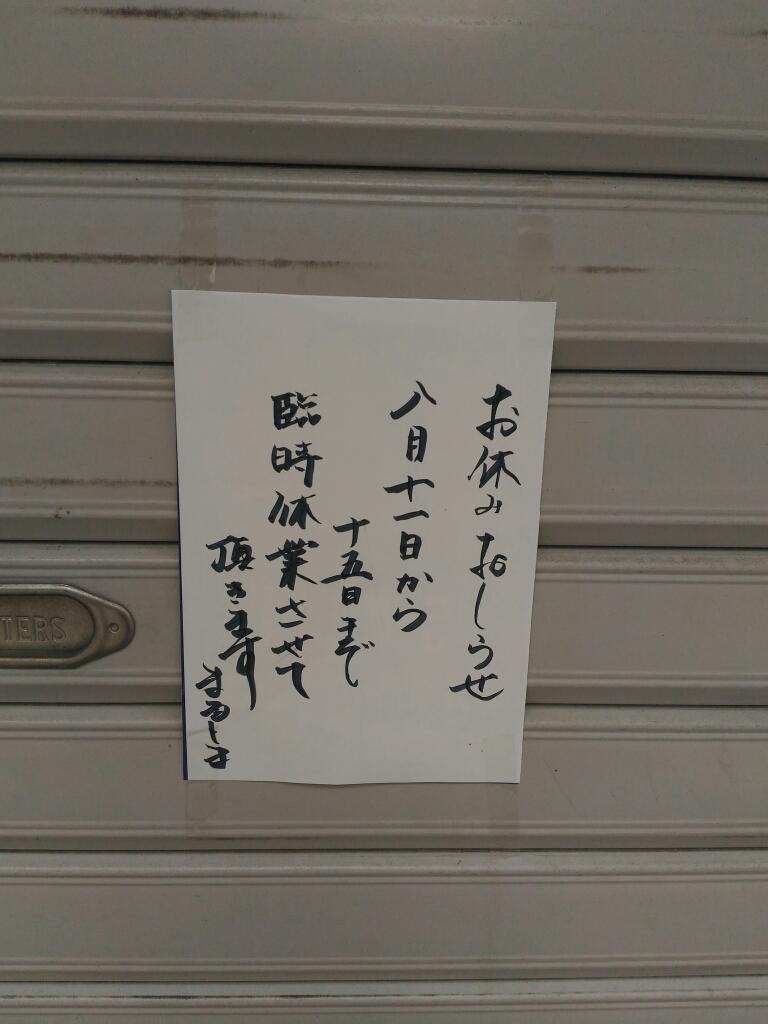 お休みおしらせ
八月十一日から
十五日まで
臨時休業させて
頂きます
まるしま
TERS